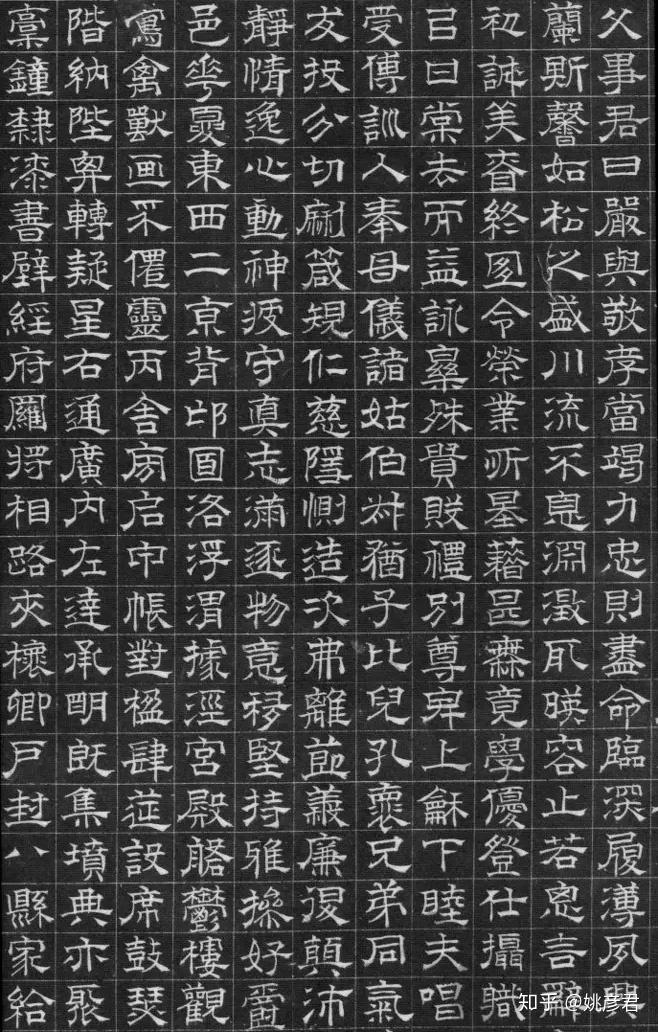 父事君曰嚴與敬孝當竭力忠則盡命臨深履薄夙興
蘭斯馨如松之盛川流不息淵澂取暎容止若思言辭
初誠美眘終宜令榮業所基藉甚無竟學優登仕攝職
㠯甘棠去而益詠樂殊貴賤禮別尊卑上龢下睦夫唱
受傅訓入奉母儀諸姑伯叔猶子比兒孔褱兄弟同氣
友投分切磨箴規仁慈隱惻造次弗離節義廉退顛沛
靜情逸心動神疲守真志滿逐物意移堅持雅操好爵
邑華夏東西二京背邙面洛浮渭據涇宮殿盤鬱樓觀
寫禽獸画采僊靈丙舍傍启甲帳對楹肆筵設席鼓瑟
階納陛弁轉疑星右通廣內左達承明既集墳典亦聚
稾鐘隸漆書壁經府羅將相路夾槐卿戶封八縣家給
知乎 @姚彦君